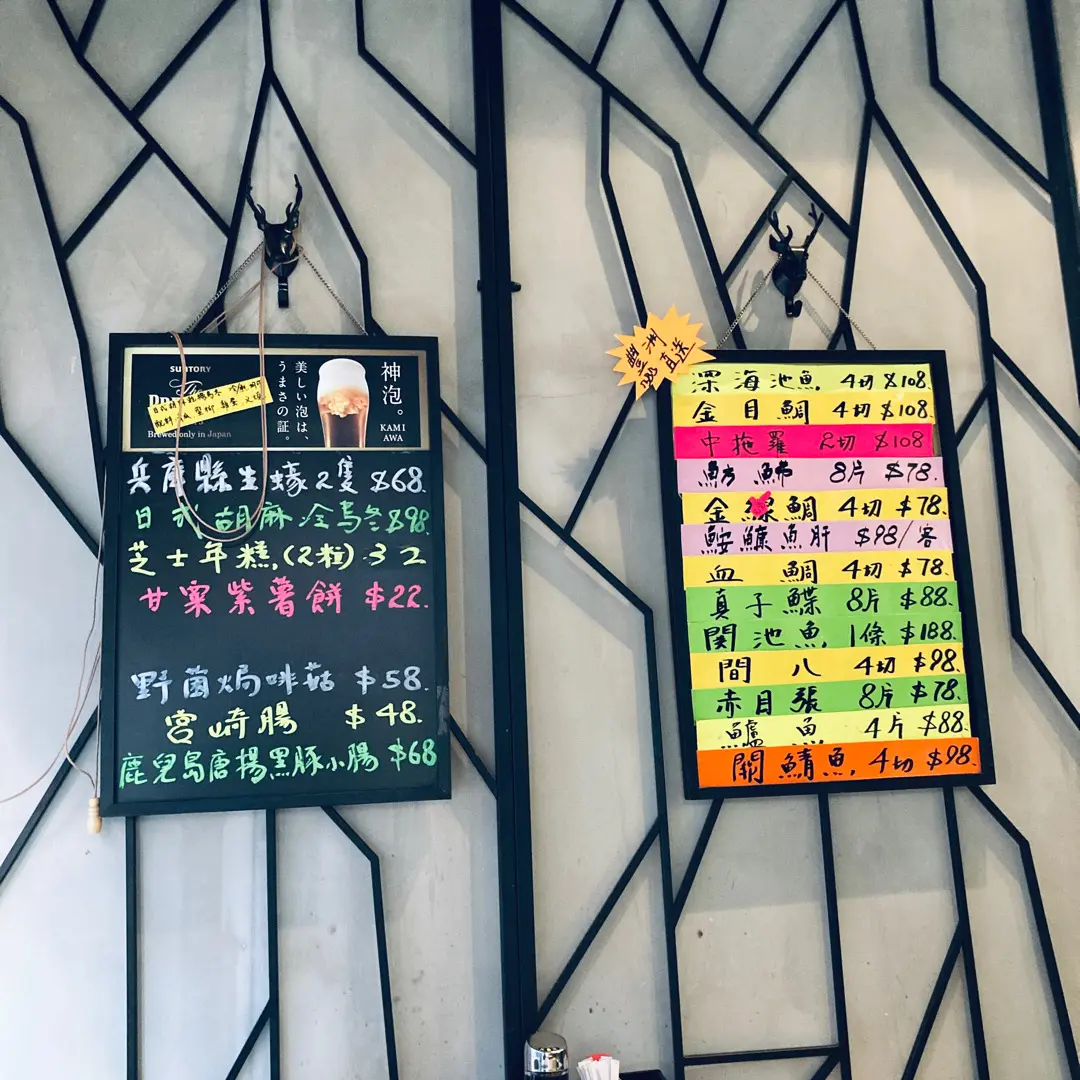 SUNTORY
The
Brewed only in Japan
美しい泡は、
うまさの証。
神泡。
KAMI
AWA
兵庫縣生蠔2隻 $68.
日式胡麻冷烏冬$98
芝士年糕.(2粒).32
甘栗紫薯餅 $22.
野菌焗啡菇 $58.
宮崎腸 $48.
鹿兒島唐揚黑豚小腸 $68
豐洲
直送
深海池魚 4切 $108
金目鯛 4切 $108
中拖羅 2切 $108
魴鮄 8片 $78.
金線鯛 4切 $78.
鮟鱇魚肝 $98/客
血鯛 4切 $78.
真子鰈 8片 $88.
関池魚 1條 $188.
間八 4切 $98.
赤目張 8片 $78.
鱸魚 4片 $88
關鯖魚 4切 $98.